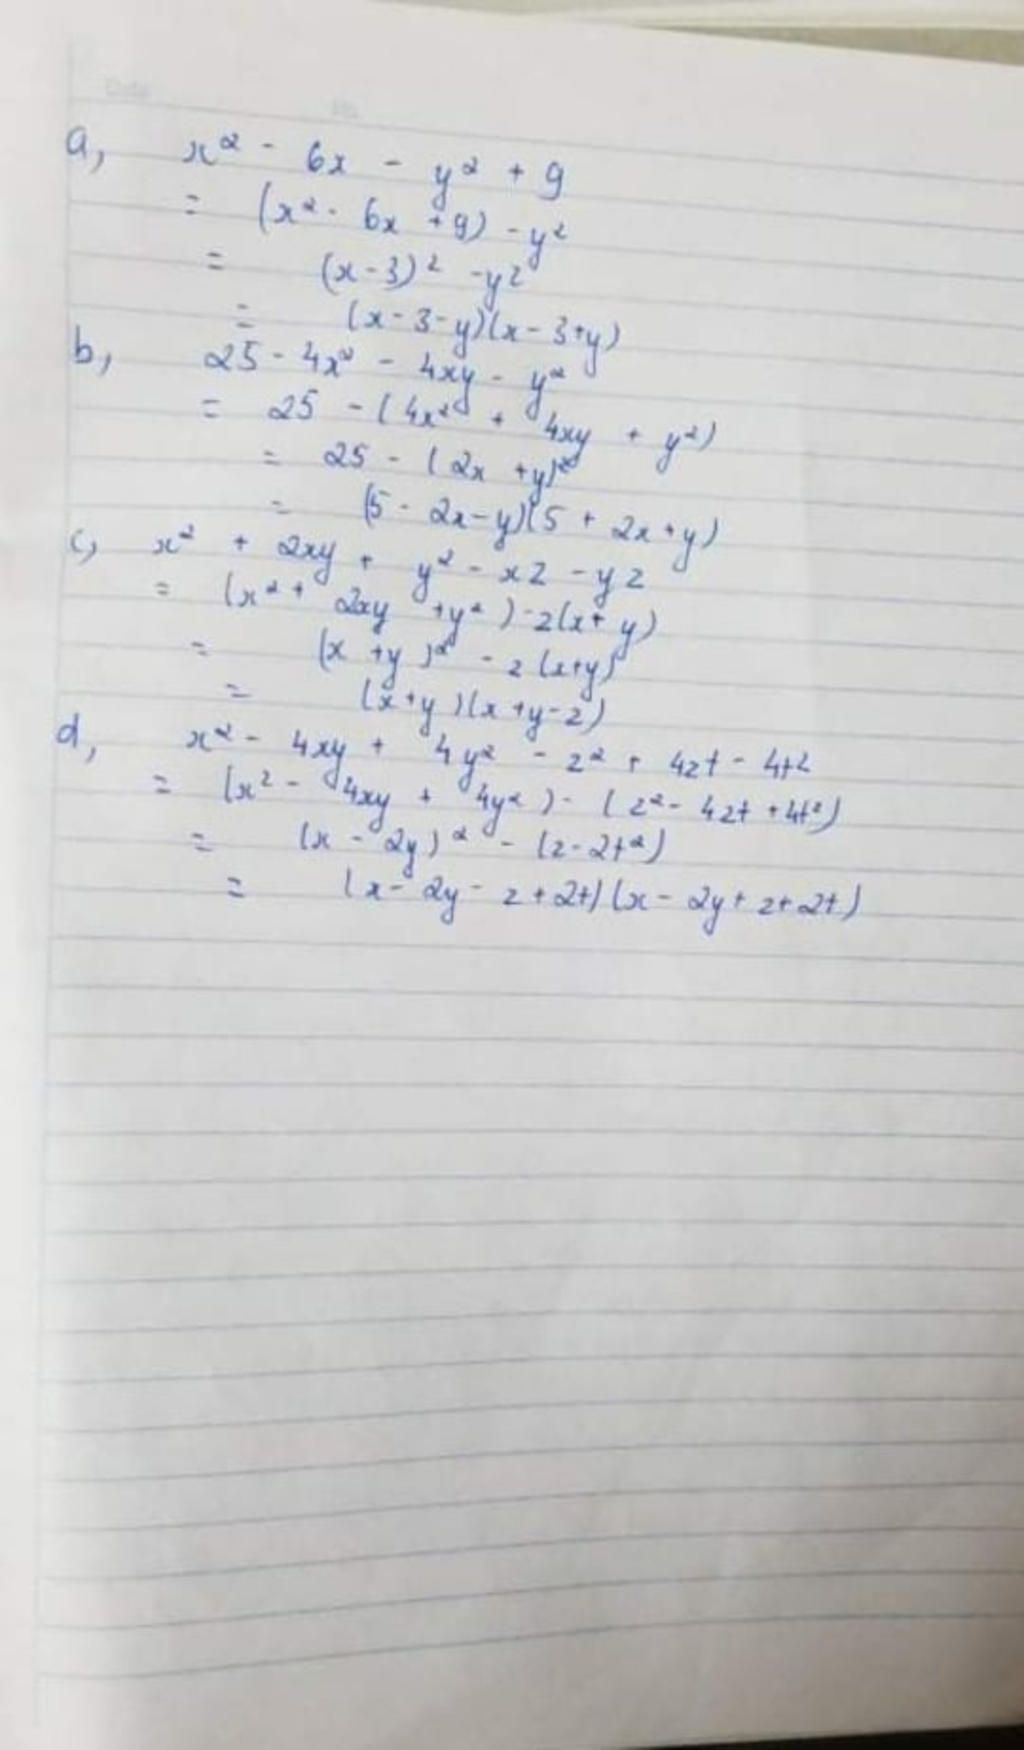 Date No.
a, x² - 6x - y² + 9
= (x² - 6x + 9) - y²
= (x - 3)² - y²
= (x - 3 - y)(x - 3 + y)
b, 25 - 4x² - 4xy - y²
= 25 - (4x² + 4xy + y²)
= 25 - (2x + y)²
= (5 - 2x - y)(5 + 2x + y)
c, x² + 2xy + y² - xz - yz
= (x² + 2xy + y²) - z(x + y)
= (x + y)² - z(x + y)
= (x + y)(x + y - z)
d, x² - 4xy + 4y² - z² + 4zt - 4t²
= (x² - 4xy + 4y²) - (z² - 4zt + 4t²)
= (x - 2y)² - (z - 2t²)
= (x - 2y - z + 2t)(x - 2y + z + 2t)